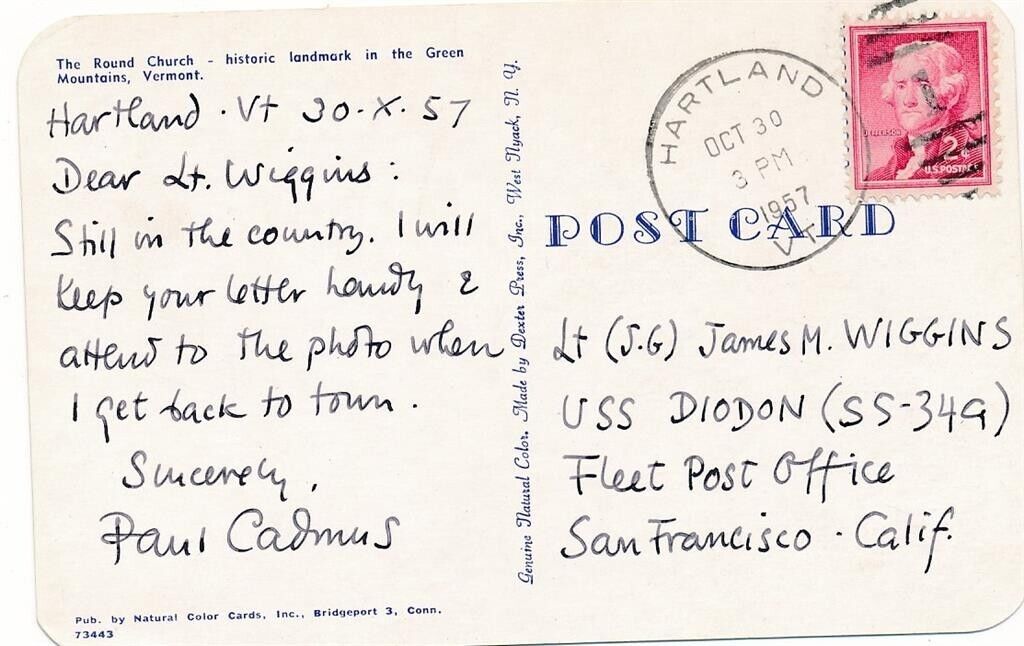 The Round Church - historic landmark in the Green
Mountains, Vermont.
Hartland . Vt 30-X-57
Dear Lt. Wiggins:
Still in the country. I will
keep your letter handy &
attend to the photo when
I get back to town.
Sincerely,
Paul Cadmus
Pub. by Natural Color Cards, Inc., Bridgeport 3, Conn.
73443
Genuine Natural Color. Made by Dexter Press, Inc., West Nyack, N. Y.
HARTLAND
OCT 30
3 PM
1957
VT
JEFFERSON
2¢
U.S. POSTAGE
POST CARD
Lt (J.G) James M. WIGGINS
USS DIODON (SS-349)
Fleet Post Office
San Francisco - Calif.